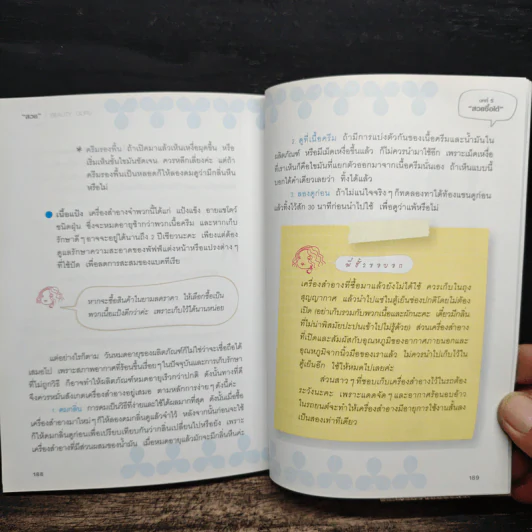 "สวย"
ครีมรองพื้น ถ้าเปิดมาแล้วเห็นเหงื่อผุดขึ้น หรือ
เริ่มเห็นชั้นไขมันชัดเจน ควรหลีกเลี่ยงค่ะ แต่ถ้า
ครีมรองพื้นเป็นหลอดก็ให้ลองดมดูว่ามีกลิ่นหืน
หรือไม่
เนื้อแป้ง เครื่องสำอางจำพวกนี้ได้แก่ แป้งแข็ง อายแชโดว์
ชนิดฝุ่น ซึ่งจะหมดอายุช้ากว่าพวกเนื้อครีม และหากเก็บ
รักษาดี ๆ อาจจะอยู่ได้นานถึง 2 ปีเชียวนะคะ เพียงแต่ต้อง
ดูแลรักษาความสะอาดของพัฟฟ์แต่งหน้าหรือแปรงต่าง ๆ
ที่ใช้ปัด เพื่อลดการสะสมของแบคทีเรีย
หากจะซื้อสินค้าในยามลดราคา ให้เลือกซื้อเป็น
พวกเนื้อแป้งดีกว่าค่ะ เพราะเก็บไว้ได้นานหน่อย
แต่อย่างไรก็ตาม วันหมดอายุของผลิตภัณฑ์ก็ไม่ใช่ว่าจะเชื่อถือได้
เสมอไป เพราะสภาพอากาศที่ร้อนขึ้นเรื่อย ๆ ในปัจจุบันและการเก็บรักษา
ที่ไม่ถูกวิธี ก็อาจทำให้ผลิตภัณฑ์หมดอายุเร็วกว่าปกติ ดังนั้นทางที่ดี
จึงควรหมั่นสังเกตเครื่องสำอางอยู่เสมอ ตามหลักการง่าย ๆ ดังนี้ค่ะ
1 ดมกลิ่น การดมเป็นวิธีที่ง่ายและใช้ได้ผลมากที่สุด ดังนั้นเมื่อซื้อ
เครื่องสำอางมาใหม่ ๆ ก็ให้ลองดมกลิ่นดูแล้วจำไว้ หลังจากนั้นก่อนจะใช้
ก็ให้ดมดูก่อนเพื่อเปรียบเทียบกันว่ากลิ่นเปลี่ยนไปหรือยัง เพราะ
เครื่องสำอางที่มีส่วนผสมของน้ำมัน เมื่อหมดอายุแล้วมักจะมีกลิ่นหืนค่ะ
188
บทที่ 6
"สวยซื้อได้"
2 ดูที่เนื้อครีม ถ้ามีการแบ่งตัวกันของเนื้อครีมและน้ำมันใน
ผลิตภัณฑ์ หรือมีเม็ดเหงื่อขึ้นแล้ว ก็ไม่ควรนำมาใช้อีก เพราะเม็ดเหงื่อ
ที่เราเห็นก็คือไขมันที่แยกตัวออกมาจากเนื้อครีมนั่นเอง ถ้าเห็นแบบนี้
บอกได้คำเดียวเลยว่า ทิ้งได้แล้ว
3 ลองดูก่อน ถ้าไม่แน่ใจจริง ๆ ก็ทดลองทาใต้ท้องแขนดูก่อน
แล้วทิ้งไว้สัก 30 นาทีก่อนนำไปใช้ เพื่อดูว่าแพ้หรือไม่
มีสาระจะบอก
เครื่องสำอางที่ซื้อมาแล้วยังไม่ได้ใช้ ควรเก็บในถุง
สุญญากาศ แล้วนำไปแช่ในตู้เย็นช่องปกติโดยไม่ต้อง
เปิด (อย่าเก็บรวมกับพวกเนื้อและผักนะคะ เดี๋ยวมีกลิ่น
ที่ไม่น่าพิสมัยปะปนเข้าไปไม่รู้ด้วย) ส่วนเครื่องสำอาง
ที่เปิดและสัมผัสกับอุณหภูมิของอากาศภายนอกและ
อุณหภูมิจากนิ้วมือของเราแล้ว ไม่ควรนำไปเก็บไว้ใน
ตู้เย็นอีก ใช้ให้หมดไปเลยค่ะ
ส่วนสาว ๆ ที่ชอบเก็บเครื่องสำอางไว้ในรถต้อง
ระวังนะคะ เพราะแดดจัด ๆ และอากาศร้อนอบอ้าว
ในรถยนต์จะทำให้เครื่องสำอางมีอายุการใช้งานสั้นลง
เป็นสองเท่าทีเดียว
189